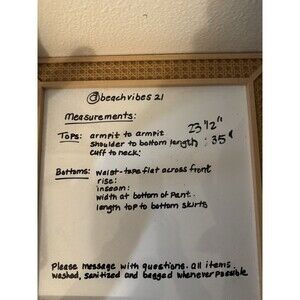 @beachvibes 21
Measurements:
Tops: armpit to armpit 23 1/2"
shoulder to bottom length : 35"
cuff to neck:
Bottoms: waist-tape flat across front
rise:
inseam:
width at bottom of pant.
length top to bottom skirts
Please message with questions. all items
washed, sanitized and bagged whenever possible